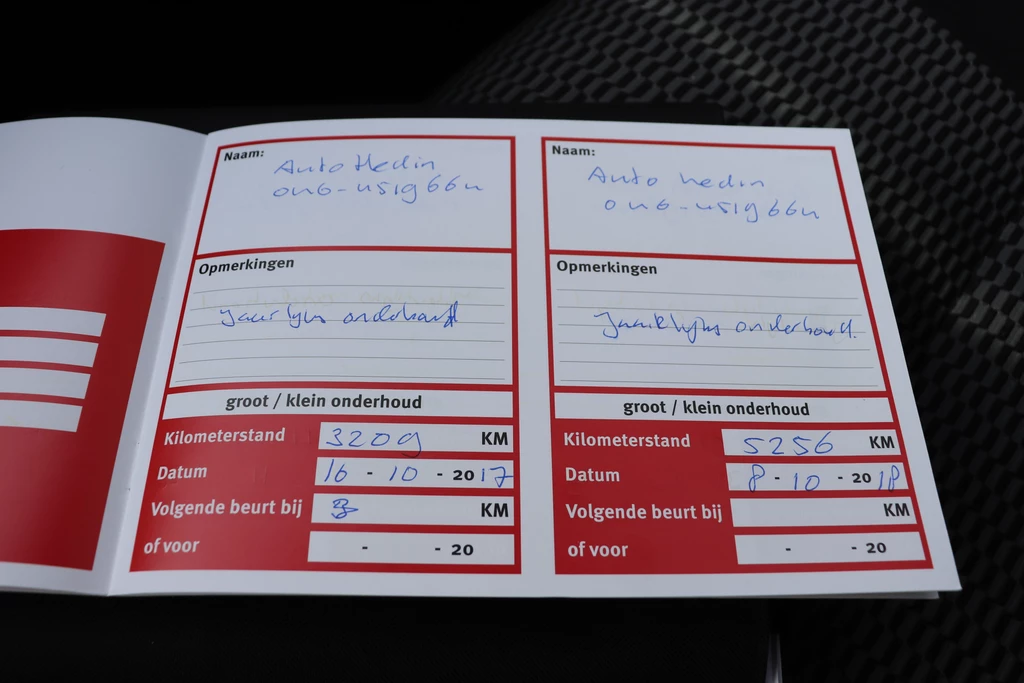 Naam:
Auto Hedin
046-4519664
Opmerkingen
Jaarlijks onderhoud
groot / klein onderhoud
Kilometerstand 3209 KM
Datum 16 - 10 - 2017
Volgende beurt bij KM
of voor - - 20
Naam:
Auto hedin
046-4519664
Opmerkingen
Jaarlijks onderhoud.
groot / klein onderhoud
Kilometerstand 5256 KM
Datum 8 - 10 - 2018
Volgende beurt bij KM
of voor - - 20